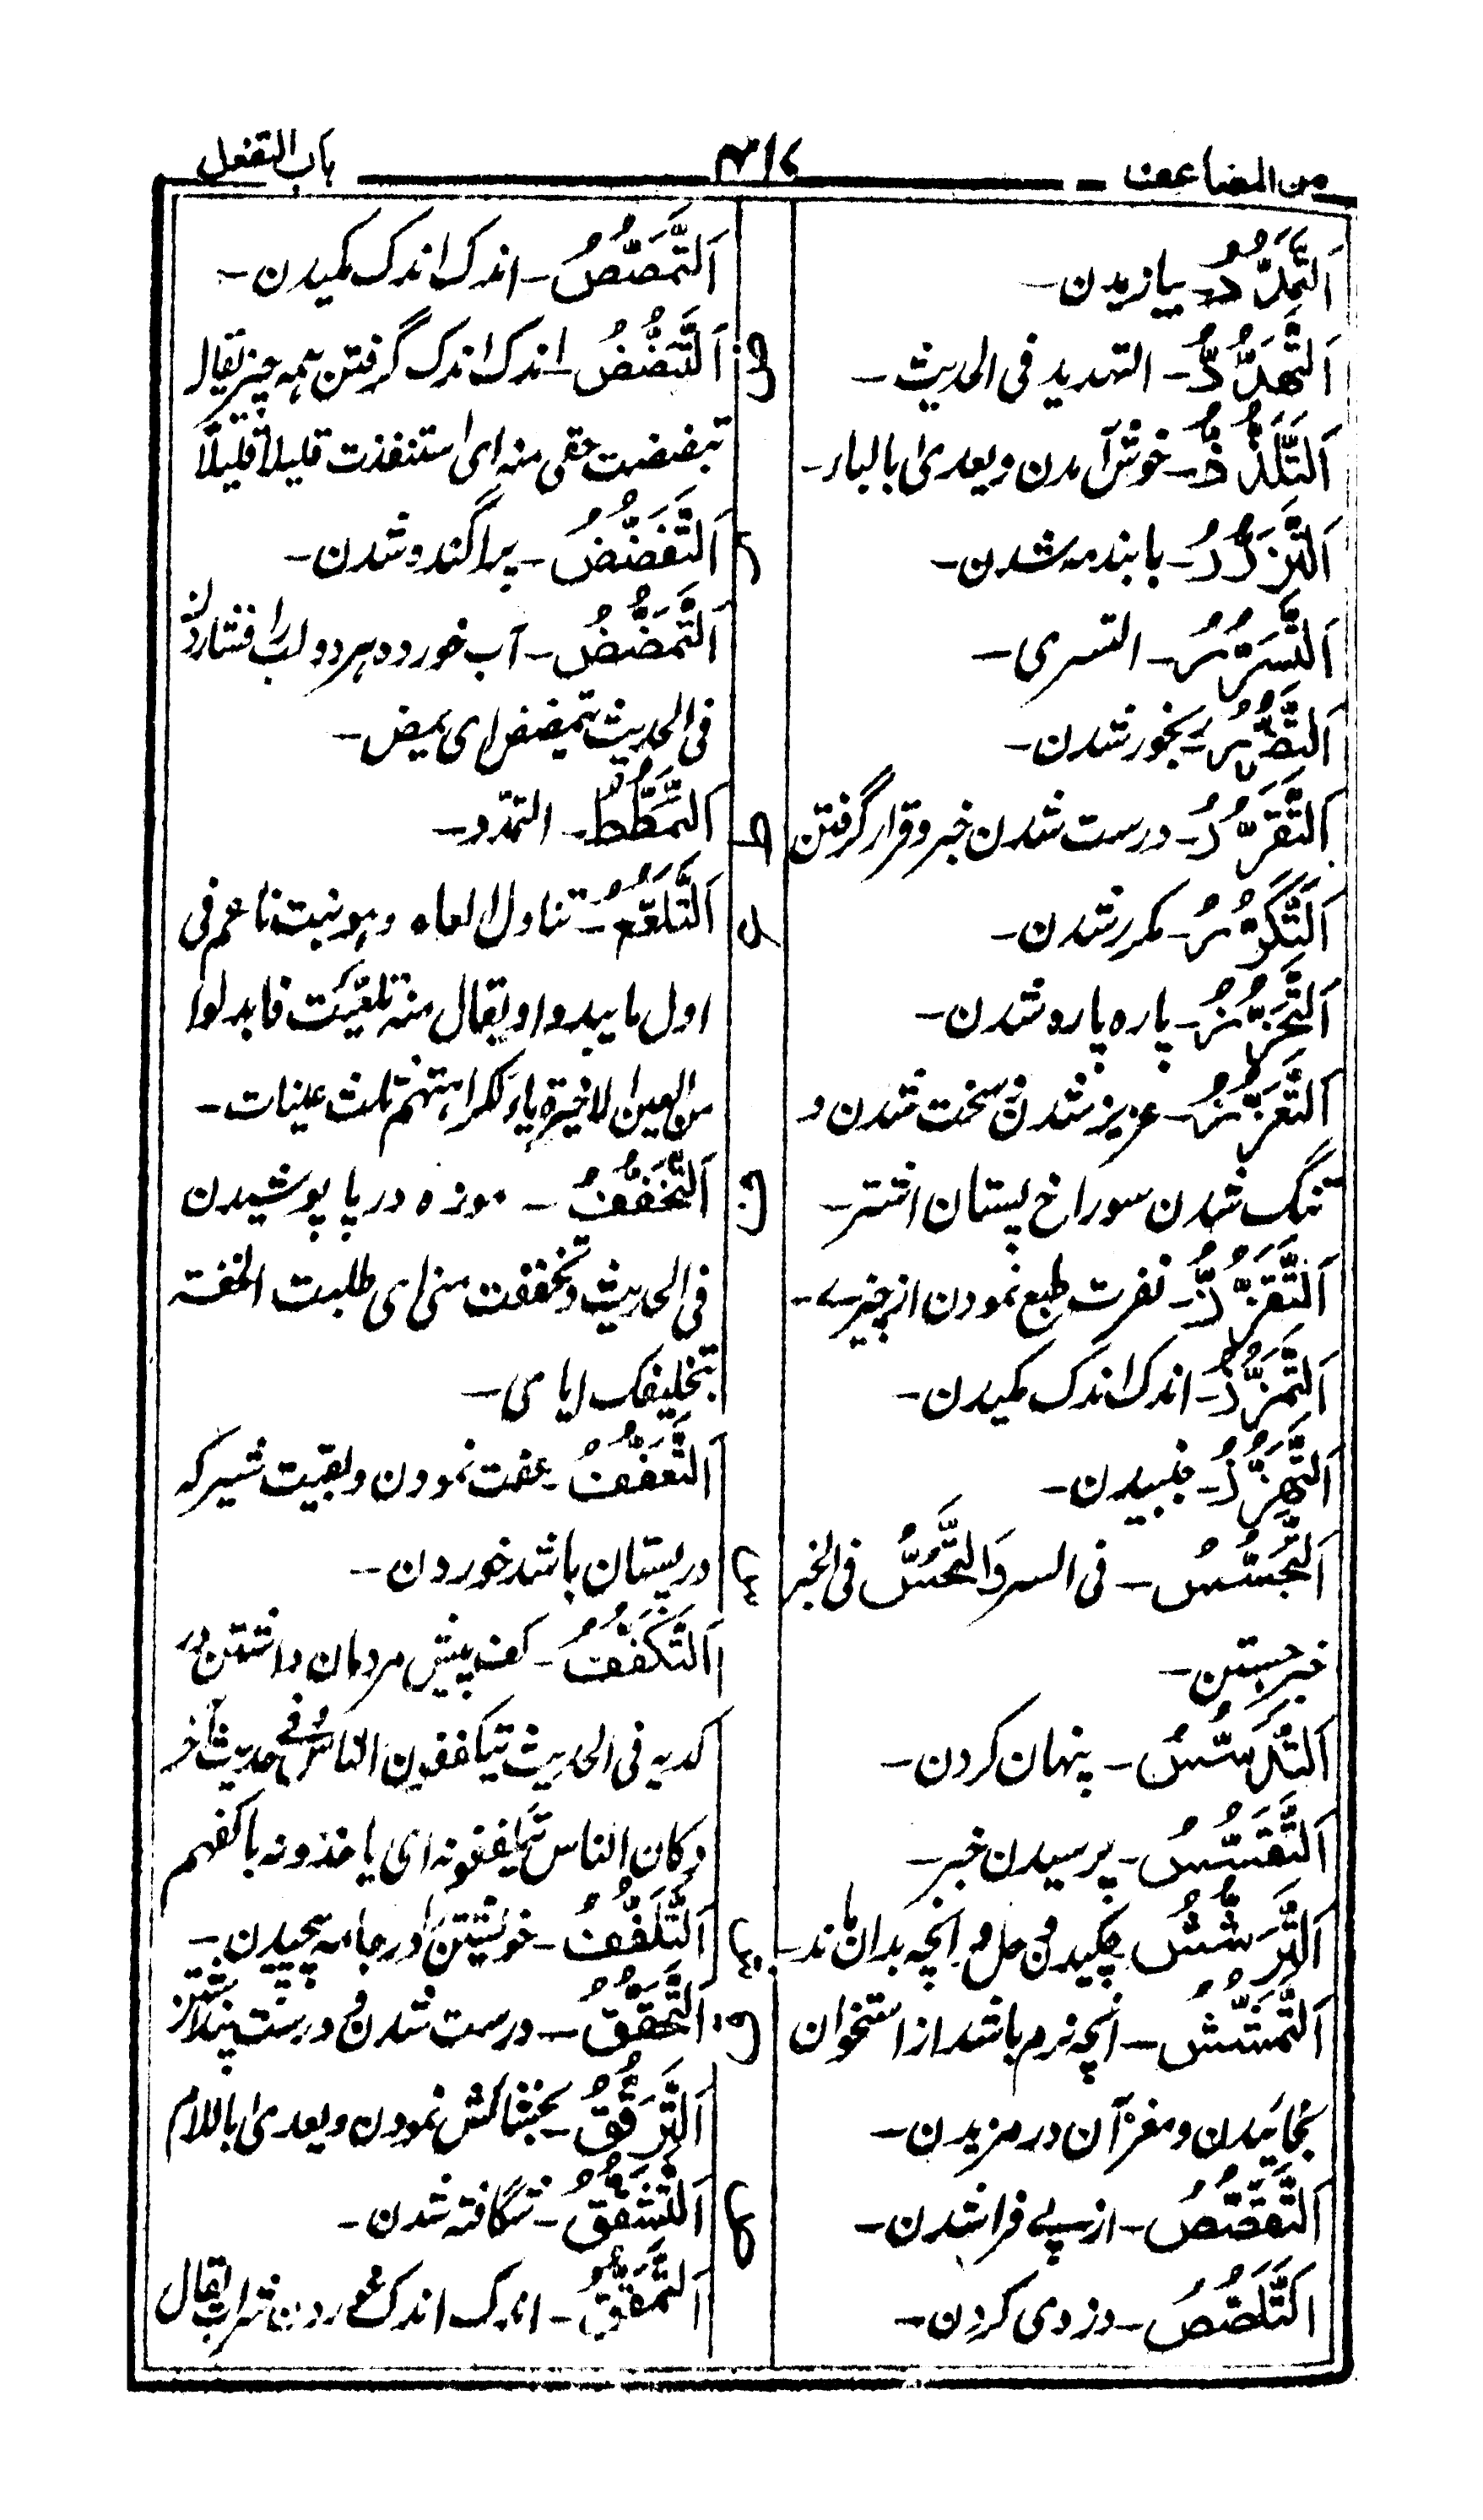 من المضاعف
۳۱۷
باب التفعل
اَلتَّمَدُّدُ۔ بیازیدن۔
اَلتَّهَدُّدُ۔ التهدید فی الحدیث۔
اَلتَّلَذُّذُ۔ خوش آمدن ویعدی بالباء۔
اَلتَّزَرُّرُ۔ بابندمه شدن۔
اَلتَّسَرُّرُ۔ التسری۔
اَلتَّضَرُّرُ۔ رنجور شدن۔
اَلتَّقَرُّرُ۔ درست شدن خبر وقرار گرفتن
اَلتَّكَرُّرُ۔ مکرر شدن۔
اَلتَّحَزُّزُ۔ پاره پاره شدن۔
اَلتَّعَزُّزُ۔ عزیز شدن وسخت شدن و
تنگ شدن سوراخ پستان اشتر۔
اَلتَّقَزُّزُ۔ نفرت طبع نمودن از چیزے۔
اَلتَّمَزُّزُ۔ اندک اندک مکیدن۔
اَلتَّهَزُّزُ۔ جنبیدن۔
اَلتَّجَسُّسُ۔ فی السر وَالتَّحَسُّسُ فی الخبر
خبر جستن۔
اَلتَّدَسُّسُ۔ پنهان کردن۔
اَلتَّقَسُّسُ۔ پرسیدن خبر۔
اَلتَّرَشُّشُ۔ چکیدن وانچه بدان ماند۔
اَلتَّمَشُّشُ۔ انچه نرم باشد از استخوان
بخائیدن ومغز آن در مزیدن۔
اَلتَّقَصُّصُ۔ از پے فرا شدن۔
اَلتَّلَصُّصُ۔ دزدی کردن۔
اَلتَّمَصُّصُ۔ اندک اندک مکیدن۔
اَلتَّبَضُّضُ۔ اندک اندک گرفتن همه چیز یقال
تبضضت حقی منه ای استنفذت قلیلاً قلیلاً
اَلتَّفَضُّضُ۔ پراگنده شدن۔
اَلتَّمَضُّضُ۔ آب خورده هر دو لب را
فی الحدیث یتمضض ای یمض۔
اَلتَّمَطُّطُ۔ التمدد۔
اَلتَّلَعُّعُ۔ تناول اللعاع وهو نبت ناعم فی
اول ما یبدو ویقال منه تلعیت فابدلوا
من العین الاخیرة یاء لکراهتهم ثلث عینات۔
اَلتَّخَفُّفُ۔ موزه در پا پوشیدن
فی الحدیث وتخففت منی ای طلبت الخفة
بتخلیفک ایای۔
اَلتَّعَفُّفُ۔ عفت نمودن وبقیت شیر که
در پستان باشد خوردن۔
اَلتَّكَفُّفُ۔ کف پیش مردمان داشتن در
کدیه فی الحدیث یتکففون الناس وفی حدیث آخر
وکان الناس یتکففونه ای یاخذونه باکفهم
اَلتَّلَفُّفُ۔ خویشتن را در جامه پیچیدن۔
اَلتَّحَقُّقُ۔ درست شدن ودرست پنداشتن
اَلتَّرَقُّقُ۔ بخشائش نمودن ویعدی باللام
اَلتَّشَقُّقُ۔ شگافته شدن۔
اَلتَّمَقُّقُ۔ اندک اندک خوردن شراب یقال